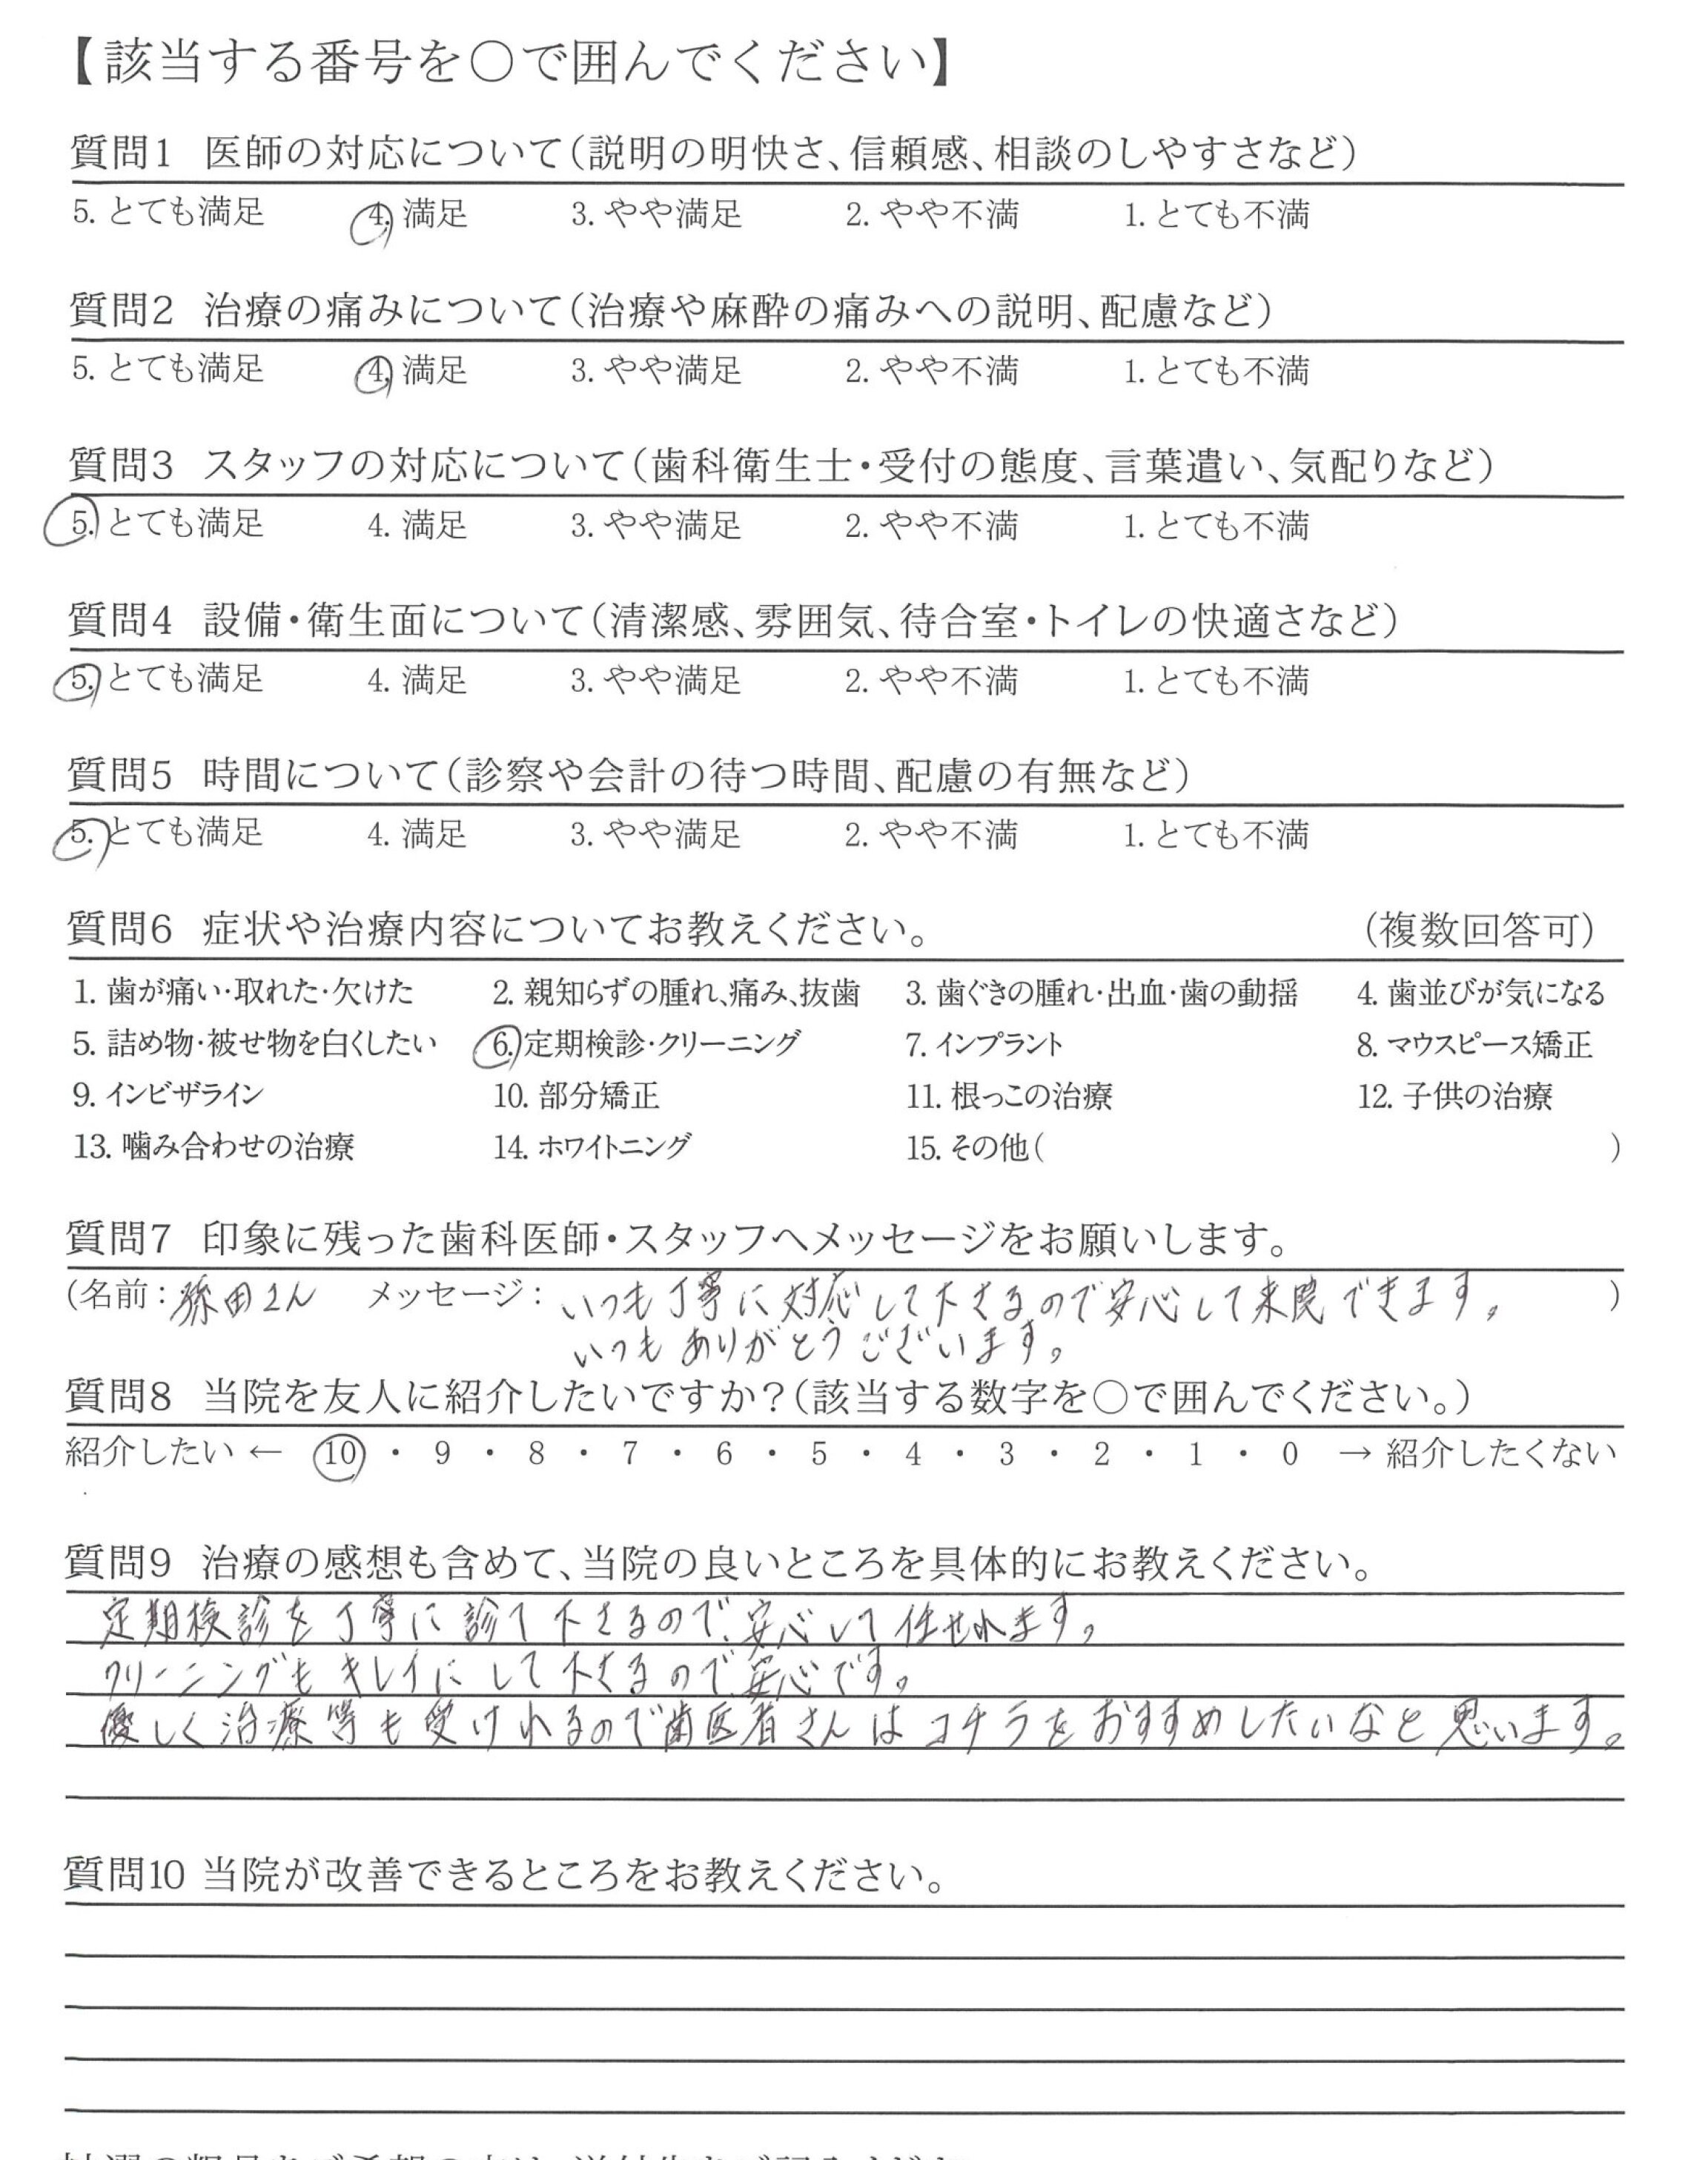 【該当する番号を○で囲んでください】
質問1 医師の対応について(説明の明快さ、信頼感、相談のしやすさなど)
5. とても満足 4. 満足 3. やや満足 2. やや不満 1. とても不満
質問2 治療の痛みについて(治療や麻酔の痛みへの説明、配慮など)
5. とても満足 4. 満足 3. やや満足 2. やや不満 1. とても不満
質問3 スタッフの対応について(歯科衛生士・受付の態度、言葉遣い、気配りなど)
5. とても満足 4. 満足 3. やや満足 2. やや不満 1. とても不満
質問4 設備・衛生面について(清潔感、雰囲気、待合室・トイレの快適さなど)
5. とても満足 4. 満足 3. やや満足 2. やや不満 1. とても不満
質問5 時間について(診察や会計の待つ時間、配慮の有無など)
5. とても満足 4. 満足 3. やや満足 2. やや不満 1. とても不満
質問6 症状や治療内容についてお教えください。 (複数回答可)
1. 歯が痛い・取れた・欠けた 2. 親知らずの腫れ、痛み、抜歯 3. 歯ぐきの腫れ・出血・歯の動揺 4. 歯並びが気になる
5. 詰め物・被せ物を白くしたい 6. 定期検診・クリーニング 7. インプラント 8. マウスピース矯正
9. インビザライン 10. 部分矯正 11. 根っこの治療 12. 子供の治療
13. 噛み合わせの治療 14. ホワイトニング 15. その他( )
質問7 印象に残った歯科医師・スタッフへメッセージをお願いします。
(名前: 田さん メッセージ: いつも丁寧に対応して下さるので安心して来院できます。 )
いつもありがとうございます。
質問8 当院を友人に紹介したいですか?(該当する数字を○で囲んでください。)
紹介したい ← 10 ・ 9 ・ 8 ・ 7 ・ 6 ・ 5 ・ 4 ・ 3 ・ 2 ・ 1 ・ 0 → 紹介したくない
質問9 治療の感想も含めて、当院の良いところを具体的にお教えください。
定期検診を丁寧に診て下さるので、安心して任せれます。
クリーニングもキレイにして下さるので安心です。
優しく治療等も受けれるので歯医者さんはコチラをおすすめしたいなと思います。
質問10 当院が改善できるところをお教えください。